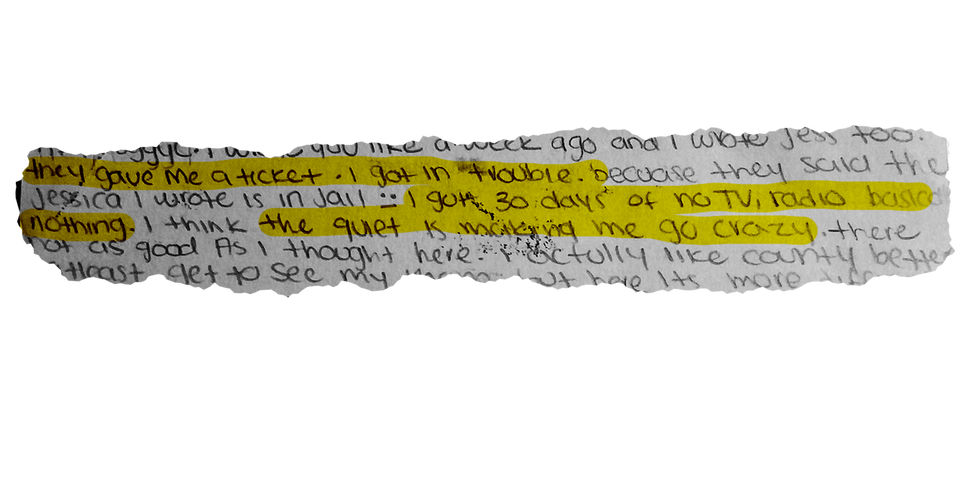 you like a week ago and I wrote Jess too.
they gave me a ticket. I got in trouble. because they said the
Jessica I wrote is in Jail :: I gott 30 days of no TV, radio basica
nothing. I think the quiet is making me go crazy there
not as good As I thought here. I actully like county better
atleast get to see my but here Its more